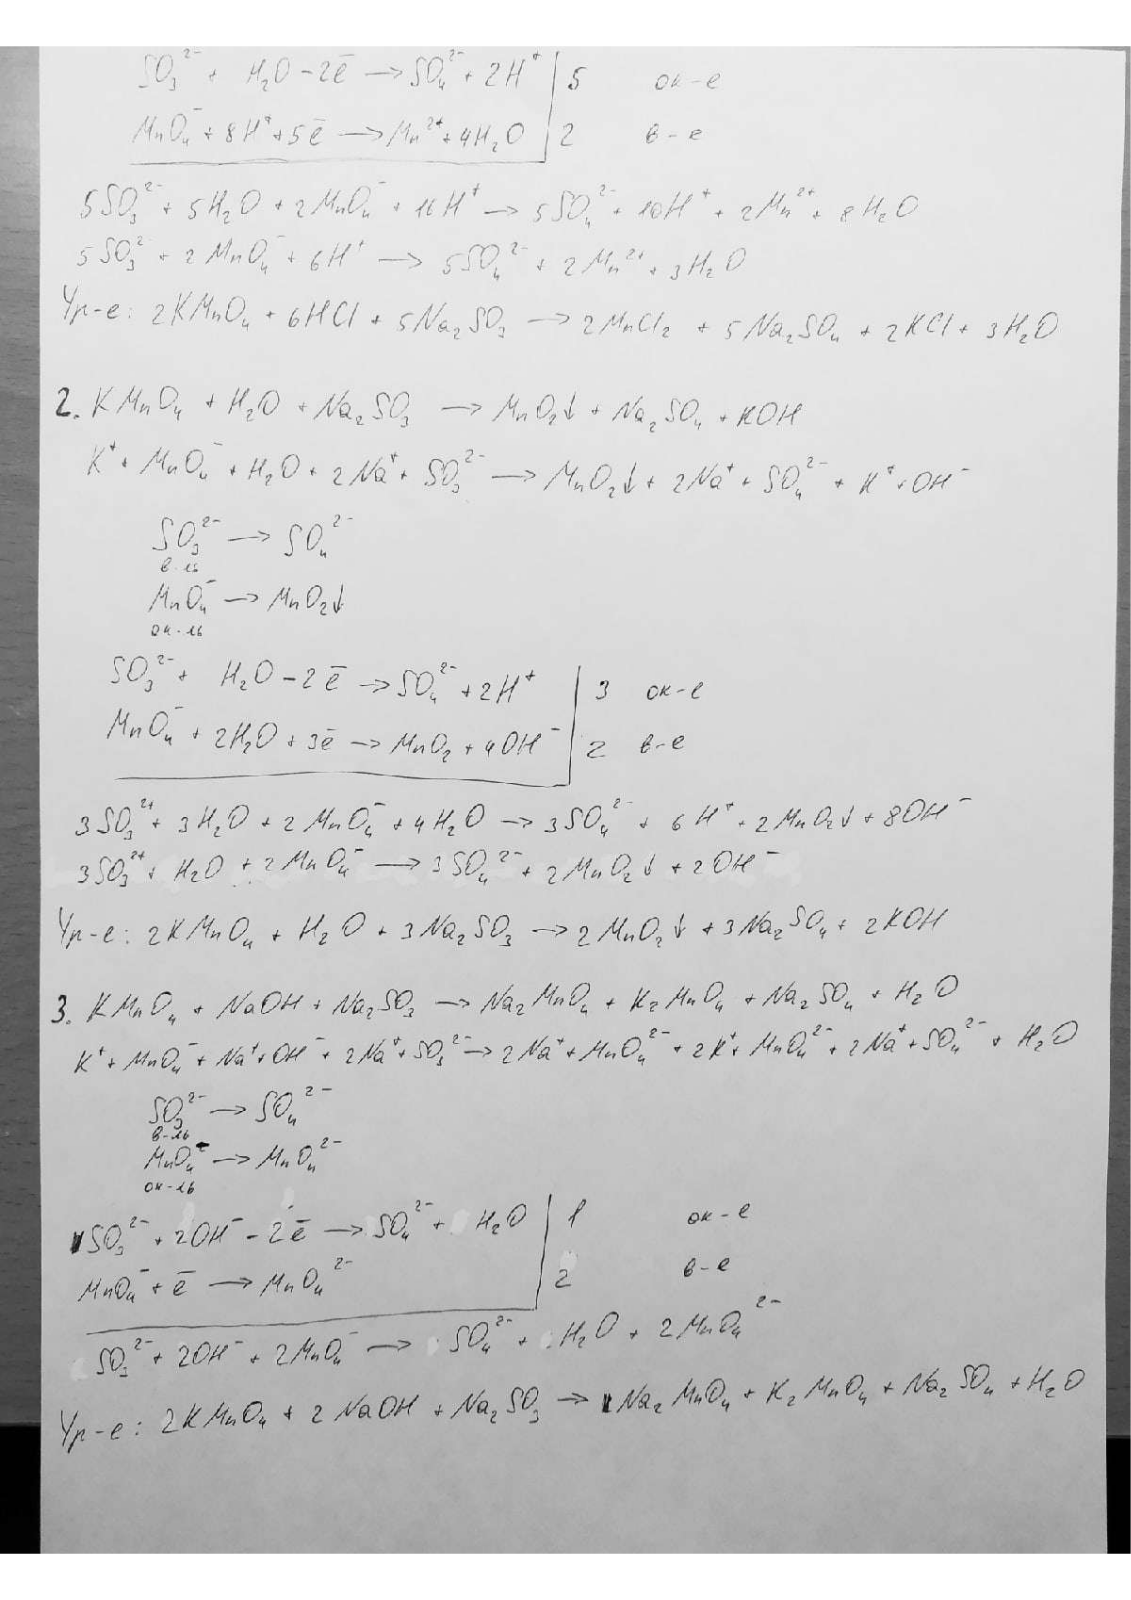 SO₃²⁻ + H₂O – 2ē → SO₄²⁻ + 2H⁺ | 5 ок-е
MnO₄⁻ + 8H⁺ + 5ē → Mn²⁺ + 4H₂O | 2 в-е
5SO₃²⁻ + 5H₂O + 2MnO₄⁻ + 16H⁺ → 5SO₄²⁻ + 10H⁺ + 2Mn²⁺ + 8H₂O
5SO₃²⁻ + 2MnO₄⁻ + 6H⁺ → 5SO₄²⁻ + 2Mn²⁺ + 3H₂O
Ур-е: 2KMnO₄ + 6HCl + 5Na₂SO₃ → 2MnCl₂ + 5Na₂SO₄ + 2KCl + 3H₂O
2. KMnO₄ + H₂O + Na₂SO₃ → MnO₂↓ + Na₂SO₄ + KOH
K⁺ + MnO₄⁻ + H₂O + 2Na⁺ + SO₃²⁻ → MnO₂↓ + 2Na⁺ + SO₄²⁻ + K⁺ + OH⁻
SO₃²⁻ → SO₄²⁻
в-ль
MnO₄⁻ → MnO₂↓
ок-ль
SO₃²⁻ + H₂O – 2ē → SO₄²⁻ + 2H⁺ | 3 ок-е
MnO₄⁻ + 2H₂O + 3ē → MnO₂ + 4OH⁻ | 2 в-е
3SO₃²⁺ + 3H₂O + 2MnO₄⁻ + 4H₂O → 3SO₄²⁻ + 6H⁺ + 2MnO₂↓ + 8OH⁻
3SO₃²⁺ + H₂O + 2MnO₄⁻ → 3SO₄²⁻ + 2MnO₂↓ + 2OH⁻
Ур-е: 2KMnO₄ + H₂O + 3Na₂SO₃ → 2MnO₂↓ + 3Na₂SO₄ + 2KOH
3. KMnO₄ + NaOH + Na₂SO₃ → Na₂MnO₄ + K₂MnO₄ + Na₂SO₄ + H₂O
K⁺ + MnO₄⁻ + Na⁺ + OH⁻ + 2Na⁺ + SO₃²⁻ → 2Na⁺ + MnO₄²⁻ + 2K⁺ + MnO₄²⁻ + 2Na⁺ + SO₄²⁻ + H₂O
SO₃²⁻ → SO₄²⁻
в-ль
MnO₄⁻ → MnO₄²⁻
ок-ль
SO₃²⁻ + 2OH⁻ – 2ē → SO₄²⁻ + H₂O | 1 ок-е
MnO₄⁻ + ē → MnO₄²⁻ | 2 в-е
SO₃²⁻ + 2OH⁻ + 2MnO₄⁻ → SO₄²⁻ + H₂O + 2MnO₄²⁻
Ур-е: 2KMnO₄ + 2NaOH + Na₂SO₃ → Na₂MnO₄ + K₂MnO₄ + Na₂SO₄ + H₂O